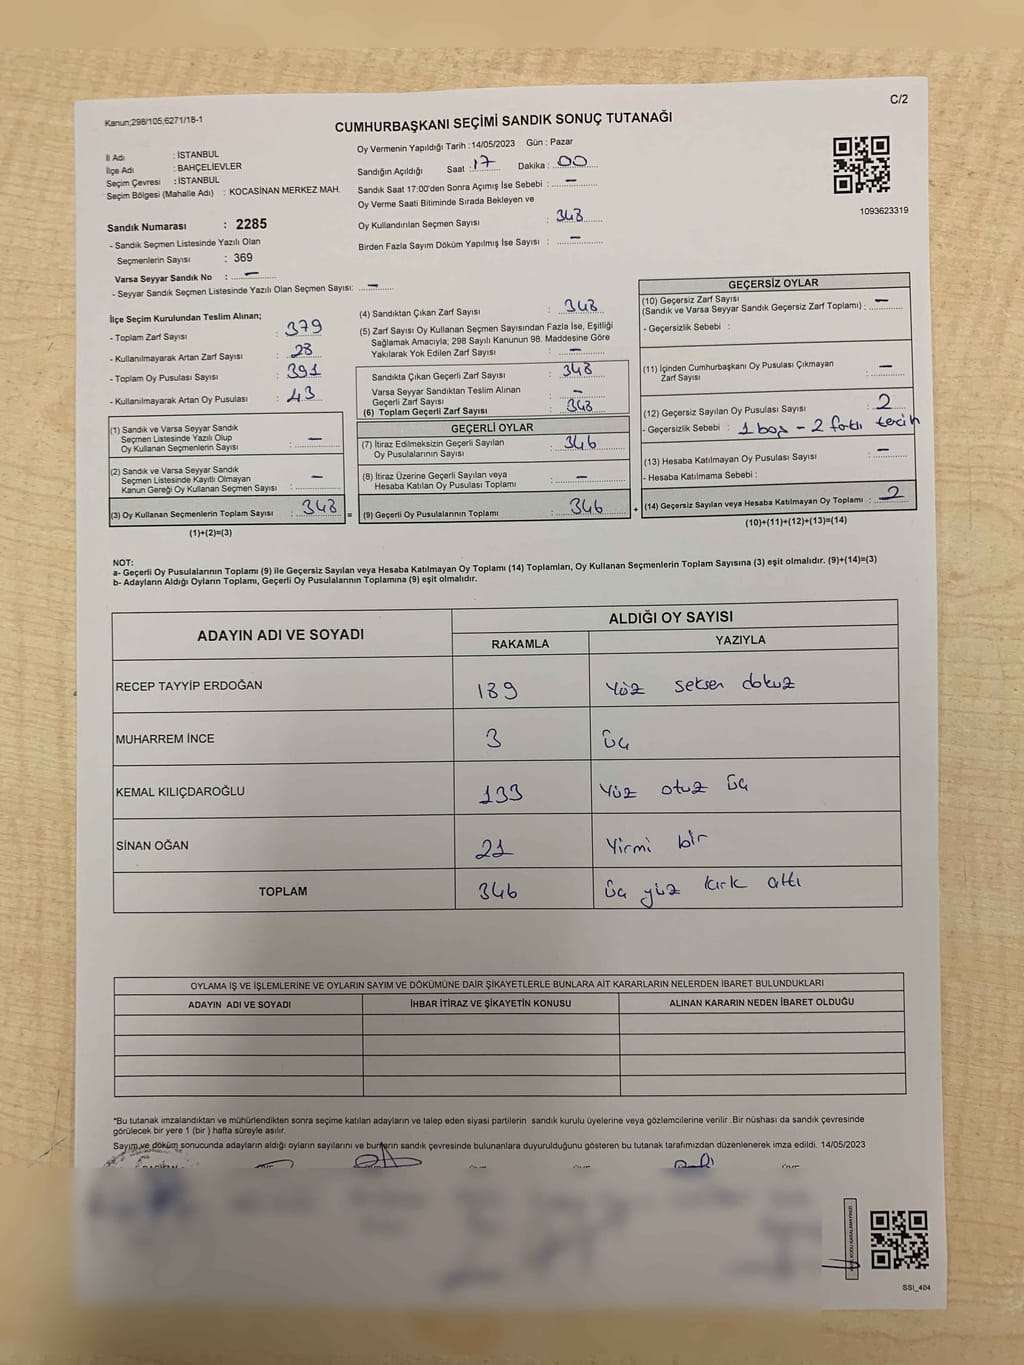 C/2
Kanun;298/105;6271/18-1
CUMHURBAŞKANI SEÇİMİ SANDIK SONUÇ TUTANAĞI
İl Adı : İSTANBUL
İlçe Adı : BAHÇELİEVLER
Seçim Çevresi : İSTANBUL
Seçim Bölgesi (Mahalle Adı) : KOCASİNAN MERKEZ MAH.
Sandık Numarası : 2285
- Sandık Seçmen Listesinde Yazılı Olan
Seçmenlerin Sayısı : 369
Varsa Seyyar Sandık No : —
- Seyyar Sandık Seçmen Listesinde Yazılı Olan Seçmen Sayısı: —
Oy Vermenin Yapıldığı Tarih :14/05/2023 Gün : Pazar
Sandığın Açıldığı Saat : 17 Dakika : 00
Sandık Saat 17:00'den Sonra Açımış İse Sebebi : —
Oy Verme Saati Bitiminde Sırada Bekleyen ve
Oy Kullandırılan Seçmen Sayısı : 348
Birden Fazla Sayım Döküm Yapılmış İse Sayısı : —
1093623319
İlçe Seçim Kurulundan Teslim Alınan;
- Toplam Zarf Sayısı : 379
- Kullanılmayarak Artan Zarf Sayısı : 28
- Toplam Oy Pusulası Sayısı : 391
- Kullanılmayarak Artan Oy Pusulası : 43
(1) Sandık ve Varsa Seyyar Sandık
Seçmen Listesinde Yazılı Olup
Oy Kullanan Seçmenlerin Sayısı : —
(2) Sandık ve Varsa Seyyar Sandık
Seçmen Listesinde Kayıtlı Olmayan
Kanun Gereği Oy Kullanan Seçmen Sayısı : —
(3) Oy Kullanan Seçmenlerin Toplam Sayısı : 348
(1)+(2)=(3)
(4) Sandıktan Çıkan Zarf Sayısı : 348
(5) Zarf Sayısı Oy Kullanan Seçmen Sayısından Fazla İse, Eşitliği
Sağlamak Amacıyla; 298 Sayılı Kanunun 98. Maddesine Göre
Yakılarak Yok Edilen Zarf Sayısı : —
Sandıkta Çıkan Geçerli Zarf Sayısı : 348
Varsa Seyyar Sandıktan Teslim Alınan
Geçerli Zarf Sayısı : —
(6) Toplam Geçerli Zarf Sayısı : 348
=
GEÇERLİ OYLAR
(7) İtiraz Edilmeksizin Geçerli Sayılan
Oy Pusulalarının Sayısı : 346
(8) İtiraz Üzerine Geçerli Sayılan veya
Hesaba Katılan Oy Pusulası Toplamı : —
(9) Geçerli Oy Pusulalarının Toplamı : 346
+
GEÇERSİZ OYLAR
(10) Geçersiz Zarf Sayısı
(Sandık ve Varsa Seyyar Sandık Geçersiz Zarf Toplamı) : —
- Geçersizlik Sebebi :
(11) İçinden Cumhurbaşkanı Oy Pusulası Çıkmayan
Zarf Sayısı : —
(12) Geçersiz Sayılan Oy Pusulası Sayısı : 2
- Geçersizlik Sebebi : 1 boş - 2 farklı tercih
(13) Hesaba Katılmayan Oy Pusulası Sayısı : —
- Hesaba Katılmama Sebebi :
(14) Geçersiz Sayılan veya Hesaba Katılmayan Oy Toplamı : 2
(10)+(11)+(12)+(13)=(14)
NOT:
a- Geçerli Oy Pusulalarının Toplamı (9) ile Geçersiz Sayılan veya Hesaba Katılmayan Oy Toplamı (14) Toplamları, Oy Kullanan Seçmenlerin Toplam Sayısına (3) eşit olmalıdır. (9)+(14)=(3)
b- Adayların Aldığı Oyların Toplamı, Geçerli Oy Pusulalarının Toplamına (9) eşit olmalıdır.
ADAYIN ADI VE SOYADI
ALDIĞI OY SAYISI
RAKAMLA YAZIYLA
RECEP TAYYİP ERDOĞAN 189 Yüz seksen dokuz
MUHARREM İNCE 3 üç
KEMAL KILIÇDAROĞLU 133 Yüz otuz üç
SİNAN OĞAN 21 Yirmi bir
TOPLAM 346 üç yüz kırk altı
OYLAMA İŞ VE İŞLEMLERİNE VE OYLARIN SAYIM VE DÖKÜMÜNE DAİR ŞİKAYETLERLE BUNLARA AİT KARARLARIN NELERDEN İBARET BULUNDUKLARI
ADAYIN ADI VE SOYADI İHBAR İTİRAZ VE ŞİKAYETİN KONUSU ALINAN KARARIN NEDEN İBARET OLDUĞU
*Bu tutanak imzalandıktan ve mühürlendikten sonra seçime katılan adayların ve talep eden siyasi partilerin sandık kurulu üyelerine veya gözlemcilerine verilir .Bir nüshası da sandık çevresinde
görülecek bir yere 1 (bir ) hafta süreyle asılır.
Sayım ve döküm sonucunda adayların aldığı oyların sayılarını ve bunların sandık çevresinde bulunanlara duyurulduğunu gösteren bu tutanak tarafımızdan düzenlenerek imza edildi. 14/05/2023
SSİ_404